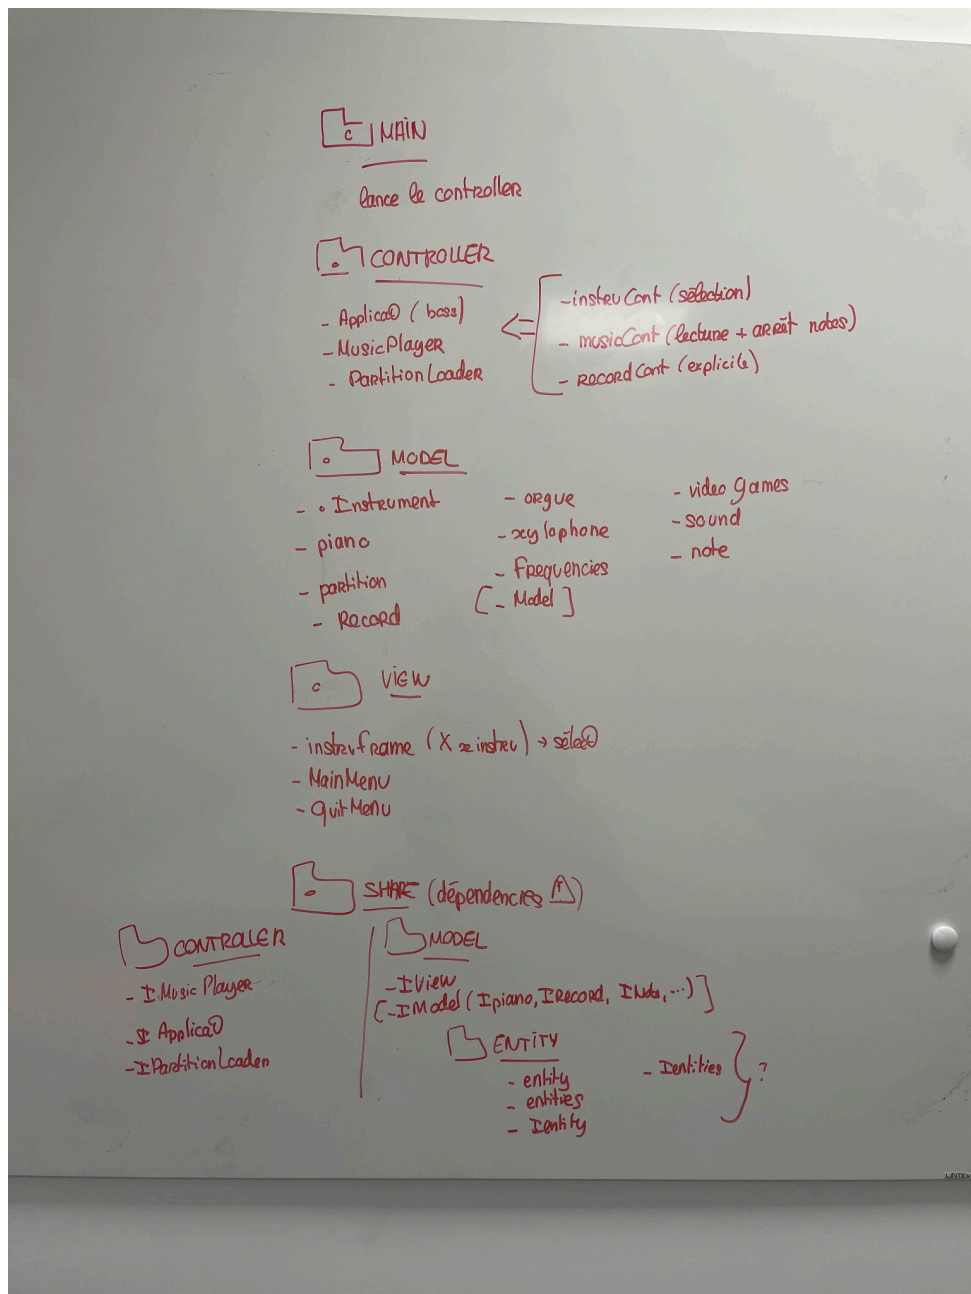 MAIN
lance le controller
CONTROLLER
- Applica⊙ (boss)
- MusicPlayer
- PartitionLoader
- instruCont (sélection)
- musicCont (lecture + arrêt notes)
- RecordCont (explicite)
MODEL
- . Instrument
- piano
- partition
- Record
- orgue
- xylophone
- Frequencies
[- Model]
- video games
- sound
- note
VIEW
- instruframe (X instru) → sélec⊙
- MainMenu
- quitMenu
SHARE (dépendencies ⚠)
CONTROLLER
- I.Music Player
- I Applica⊙
- IPartitionLoader
MODEL
- IView
[- IModel (Ipiano, IRecord, INote, ...)]
ENTITY
- entity
- entities
- Ientity
- Ientities
?